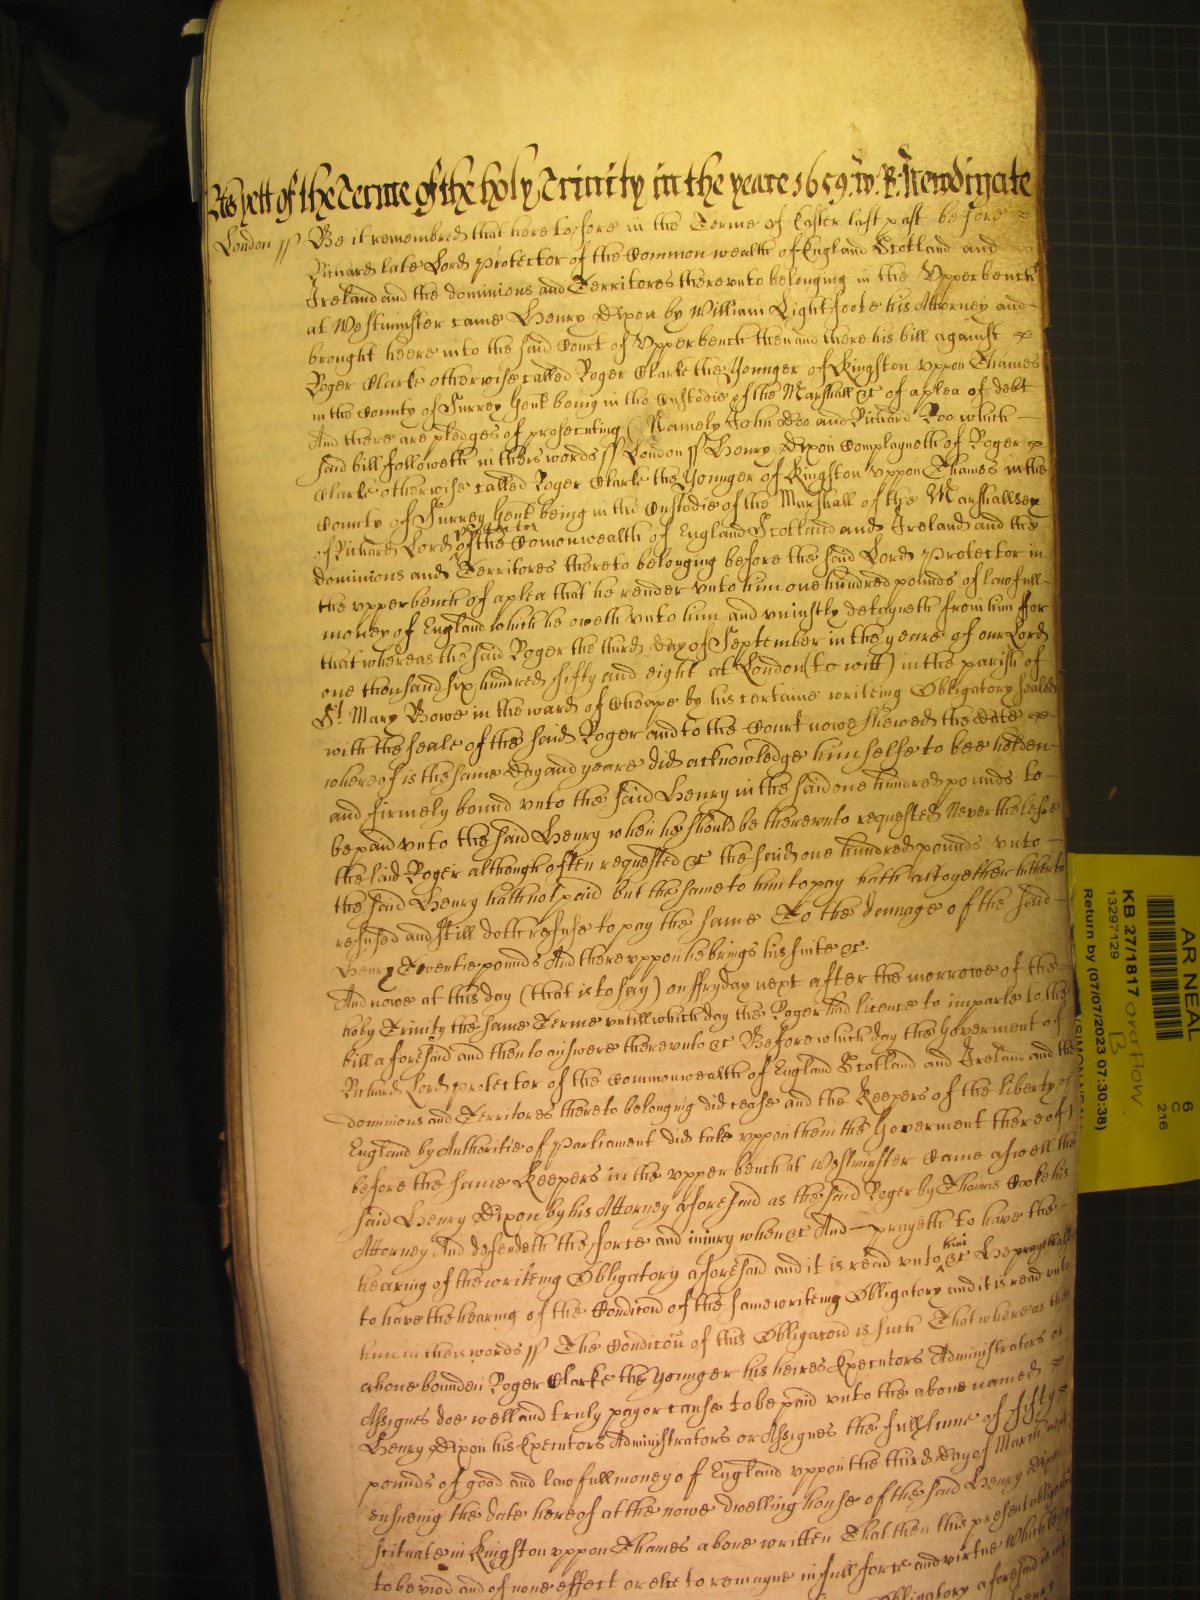 As yett of the Terme of the holy Trinity in the yeare 1659. W. R. Newdigate
London ss Be it remembred that heretofore in the Terme of Easter last past before
Richard late Lord Protector of the Common wealth of England Scotland and
Ireland and the dominions and Territores therevnto belonging in the Vpperbench
at Westminster came Henry Dixon by William Lightfoote his Attorney and
brought heere into the said Court of Vpperbench then and there his bill against
Roger Clarke otherwise called Roger Clarke the Younger of Kingston vppon Thames
in the County of Surrey Gent being in the Custodie of the Marshall &c of a plea of debt
And there are pledges of prosecuting (Namely John Doo and Richard Roo which
said bill followeth in theis words ss London ss Henry Dixon Complayneth of Roger
Clarke otherwise called Roger Clarke the Younger of Kingston vppon Thames in the
County of Surrey Gent being in the Custodie of the Marshall of the Marshallsey
of Richard Lord Protector of the Comonwealth of England Scotland and Ireland and the
dominions and Territores thereto belonging before the said Lord Protector in
the vpperbench of a plea that he render vnto him one hundred pounds of lawfull
money of England which he oweth vnto him and vniustly detayneth from him for
that whereas the said Roger the third day of September in the yeare of our Lord
one thousand six hundred fifty and eight at London (to witt) in the parish of
St. Mary Bowe in the ward of Cheape by his certaine writeing Obligatory sealed
with the seale of the said Roger and to the Court nowe shewed the date
whereof is the same day and yeare did acknowledge himselfe to bee holden
and firmely bound vnto the said Henry in the said one hundred pounds to
be paid vnto the said Henry when he should be therevnto requested Neverthelesse
the said Roger although often requested &c the said one hundred pounds vnto
the said Henry hath not paid but the same to him to pay hath altogether hitherto
refused and still doth refuse to pay the same To the damage of the said
Henry Twentie pounds And therevppon he brings his suite &c.
And nowe at this day (that is to say) on ffryday next after the morrowe of the
holy Trinity the same Terme vntill which day the Roger had licence to imparle to the
bill aforesaid and then to answere therevnto &c Before which day the Goverment of
Richard Lord protector of the Commonwealth of England Scotland and Ireland and the
dominions and Territores thereto belonging did cease and the Keepers of the liberty of
England by Authoritie of Parliament did take vppon them the Goverment thereof)
before the same Keepers in the vpper bench at Westminster Came aswell the
said Henry Dixon by his Attorney aforesaid as the said Roger by Thomas Cooke his
Attorney And defendeth the force and iniury when &c And prayeth to have the
hearing of the writeing Obligatory aforesaid and it is read vnto him &c He prayeth also
to have the hearing of the Condicon of the same writeing Obligatory and it is read vnto
him in theis words ss The Condicon of this Obligacon is such That whereas the
above bounden Roger Clarke the Younger his heires Executors Administrators or
Assignes doe well and truly pay or cause to be paid vnto the above named
Henry Dixon his Executors Administrators or Assignes the full summe of fifty
pounds of good and lawfull money of England vppon the third day of March next
ensueing the date hereof at the nowe dwelling house of the said Henry Dixon
scituate in Kingston vppon Thames above written That then this present obligacon
to be viod and of none effect or else to remayne in full force and virtue Which
Obligatory aforesaid is
AR NEAL
6
C
216
KB 27/1817 overflow
B
13297129
Return by (07/07/2023 07:30:38)